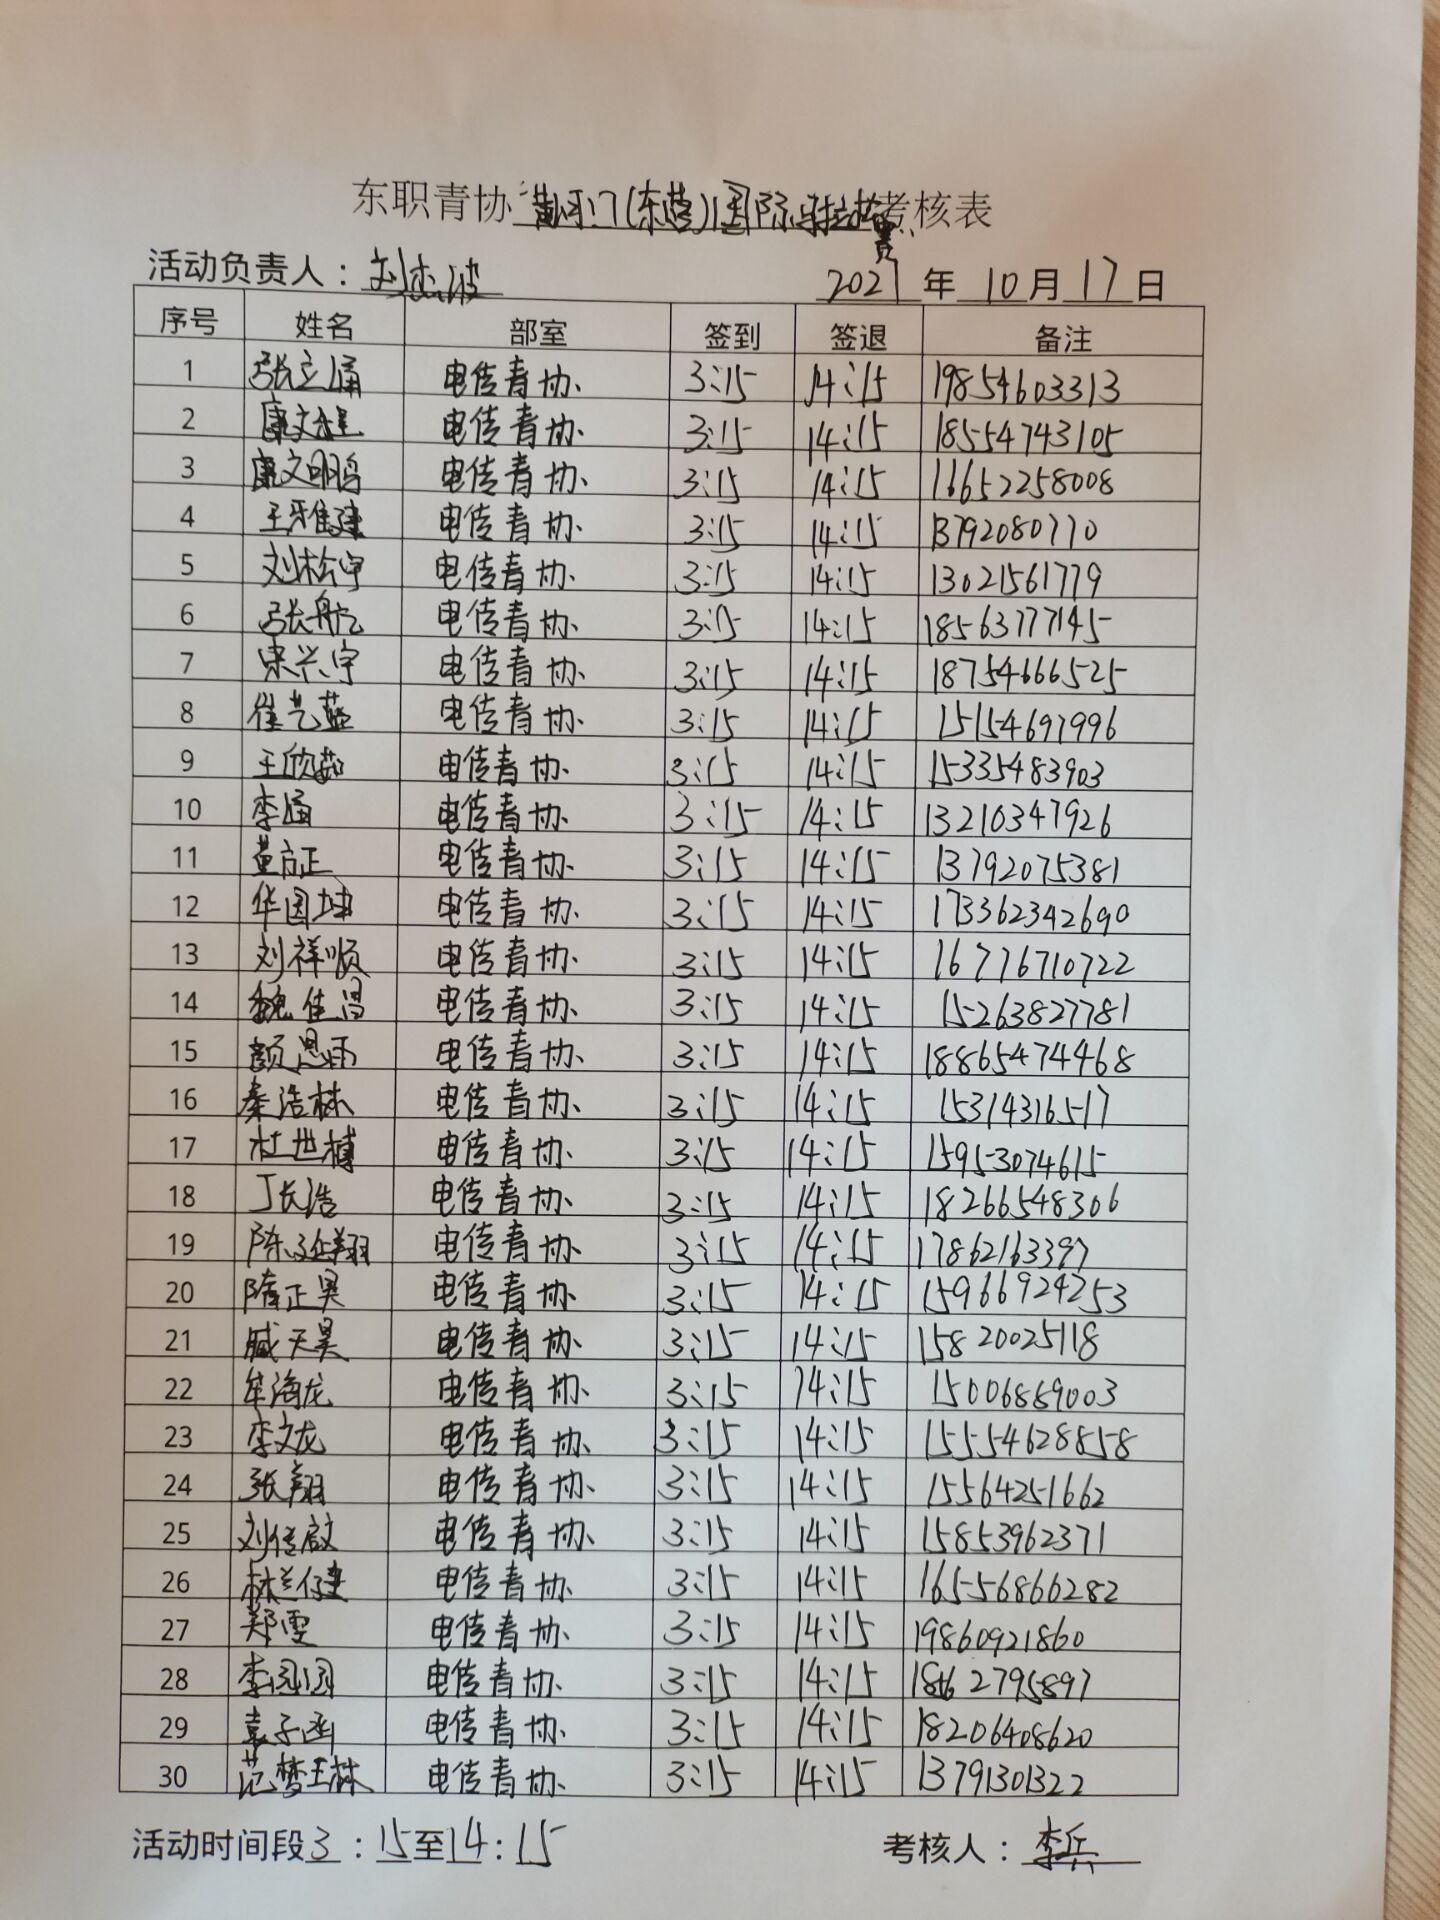 东职青协 黄河口(东营)国际马拉松赛 考核表
活动负责人：刘杰波 2021年10月17日
序号 姓名 部室 签到 签退 备注
1 张立涌 电传青协 3:15 14:15 19854603313
2 康文健 电传青协 3:15 14:15 18554743105
3 康文明 电传青协 3:15 14:15 16652258008
4 王雅建 电传青协 3:15 14:15 13792080770
5 刘松宇 电传青协 3:15 14:15 13021561779
6 张航 电传青协 3:15 14:15 18563777145
7 宋兴宇 电传青协 3:15 14:15 18754666525
8 崔艺蓝 电传青协 3:15 14:15 15154697996
9 王欣茹 电传青协 3:15 14:15 15335483903
10 李涵 电传青协 3:15 14:15 13210347926
11 董方正 电传青协 3:15 14:15 13792075381
12 华国坤 电传青协 3:15 14:15 173362342690
13 刘祥顺 电传青协 3:15 14:15 16776710722
14 魏佳 电传青协 3:15 14:15 15263827781
15 颜恩雨 电传青协 3:15 14:15 18865474468
16 秦浩林 电传青协 3:15 14:15 15314316517
17 杜世博 电传青协 3:15 14:15 15953074615
18 丁长浩 电传青协 3:15 14:15 18266548306
19 陈延翔 电传青协 3:15 14:15 17862163397
20 隋正昊 电传青协 3:15 14:15 15966924253
21 臧天昊 电传青协 3:15 14:15 15820025118
22 牟海龙 电传青协 3:15 14:15 15006869003
23 李文龙 电传青协 3:15 14:15 15554628858
24 张翔 电传青协 3:15 14:15 15564251662
25 刘传啟 电传青协 3:15 14:15 15853962371
26 林兰健 电传青协 3:15 14:15 16556866282
27 郑雯 电传青协 3:15 14:15 19860921860
28 李闵闵 电传青协 3:15 14:15
29 袁子函 电传青协 3:15 14:15 18206408620
30 范梦琳 电传青协 3:15 14:15 13791301322
活动时间段3:15至14:15 考核人：李兵